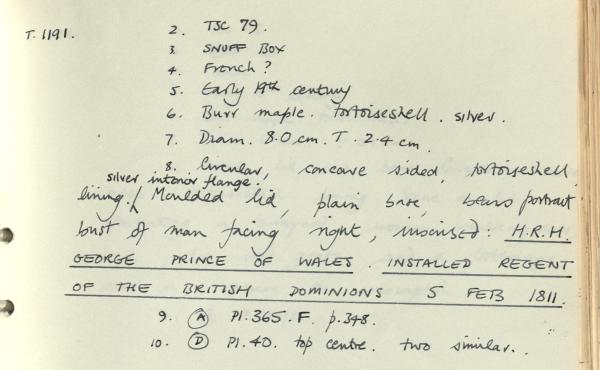 T. 1191.
2. TSC 79.
3. SNUFF BOX
4. French?
5. Early 19th century
6. Burr maple. tortoiseshell. silver.
7. Diam. 8.0 cm. T. 2.4 cm.
8. Circular, concave sided, tortoiseshell
silver interior flange.
lining. Moulded lid, plain base, bears portrait
bust of man facing right, inscribed: H.R.H.
GEORGE PRINCE OF WALES. INSTALLED REGENT
OF THE BRITISH DOMINIONS 5 FEB 1811.
9. A Pl. 365. F. p. 348.
10. D Pl. 40. top centre. two similar.